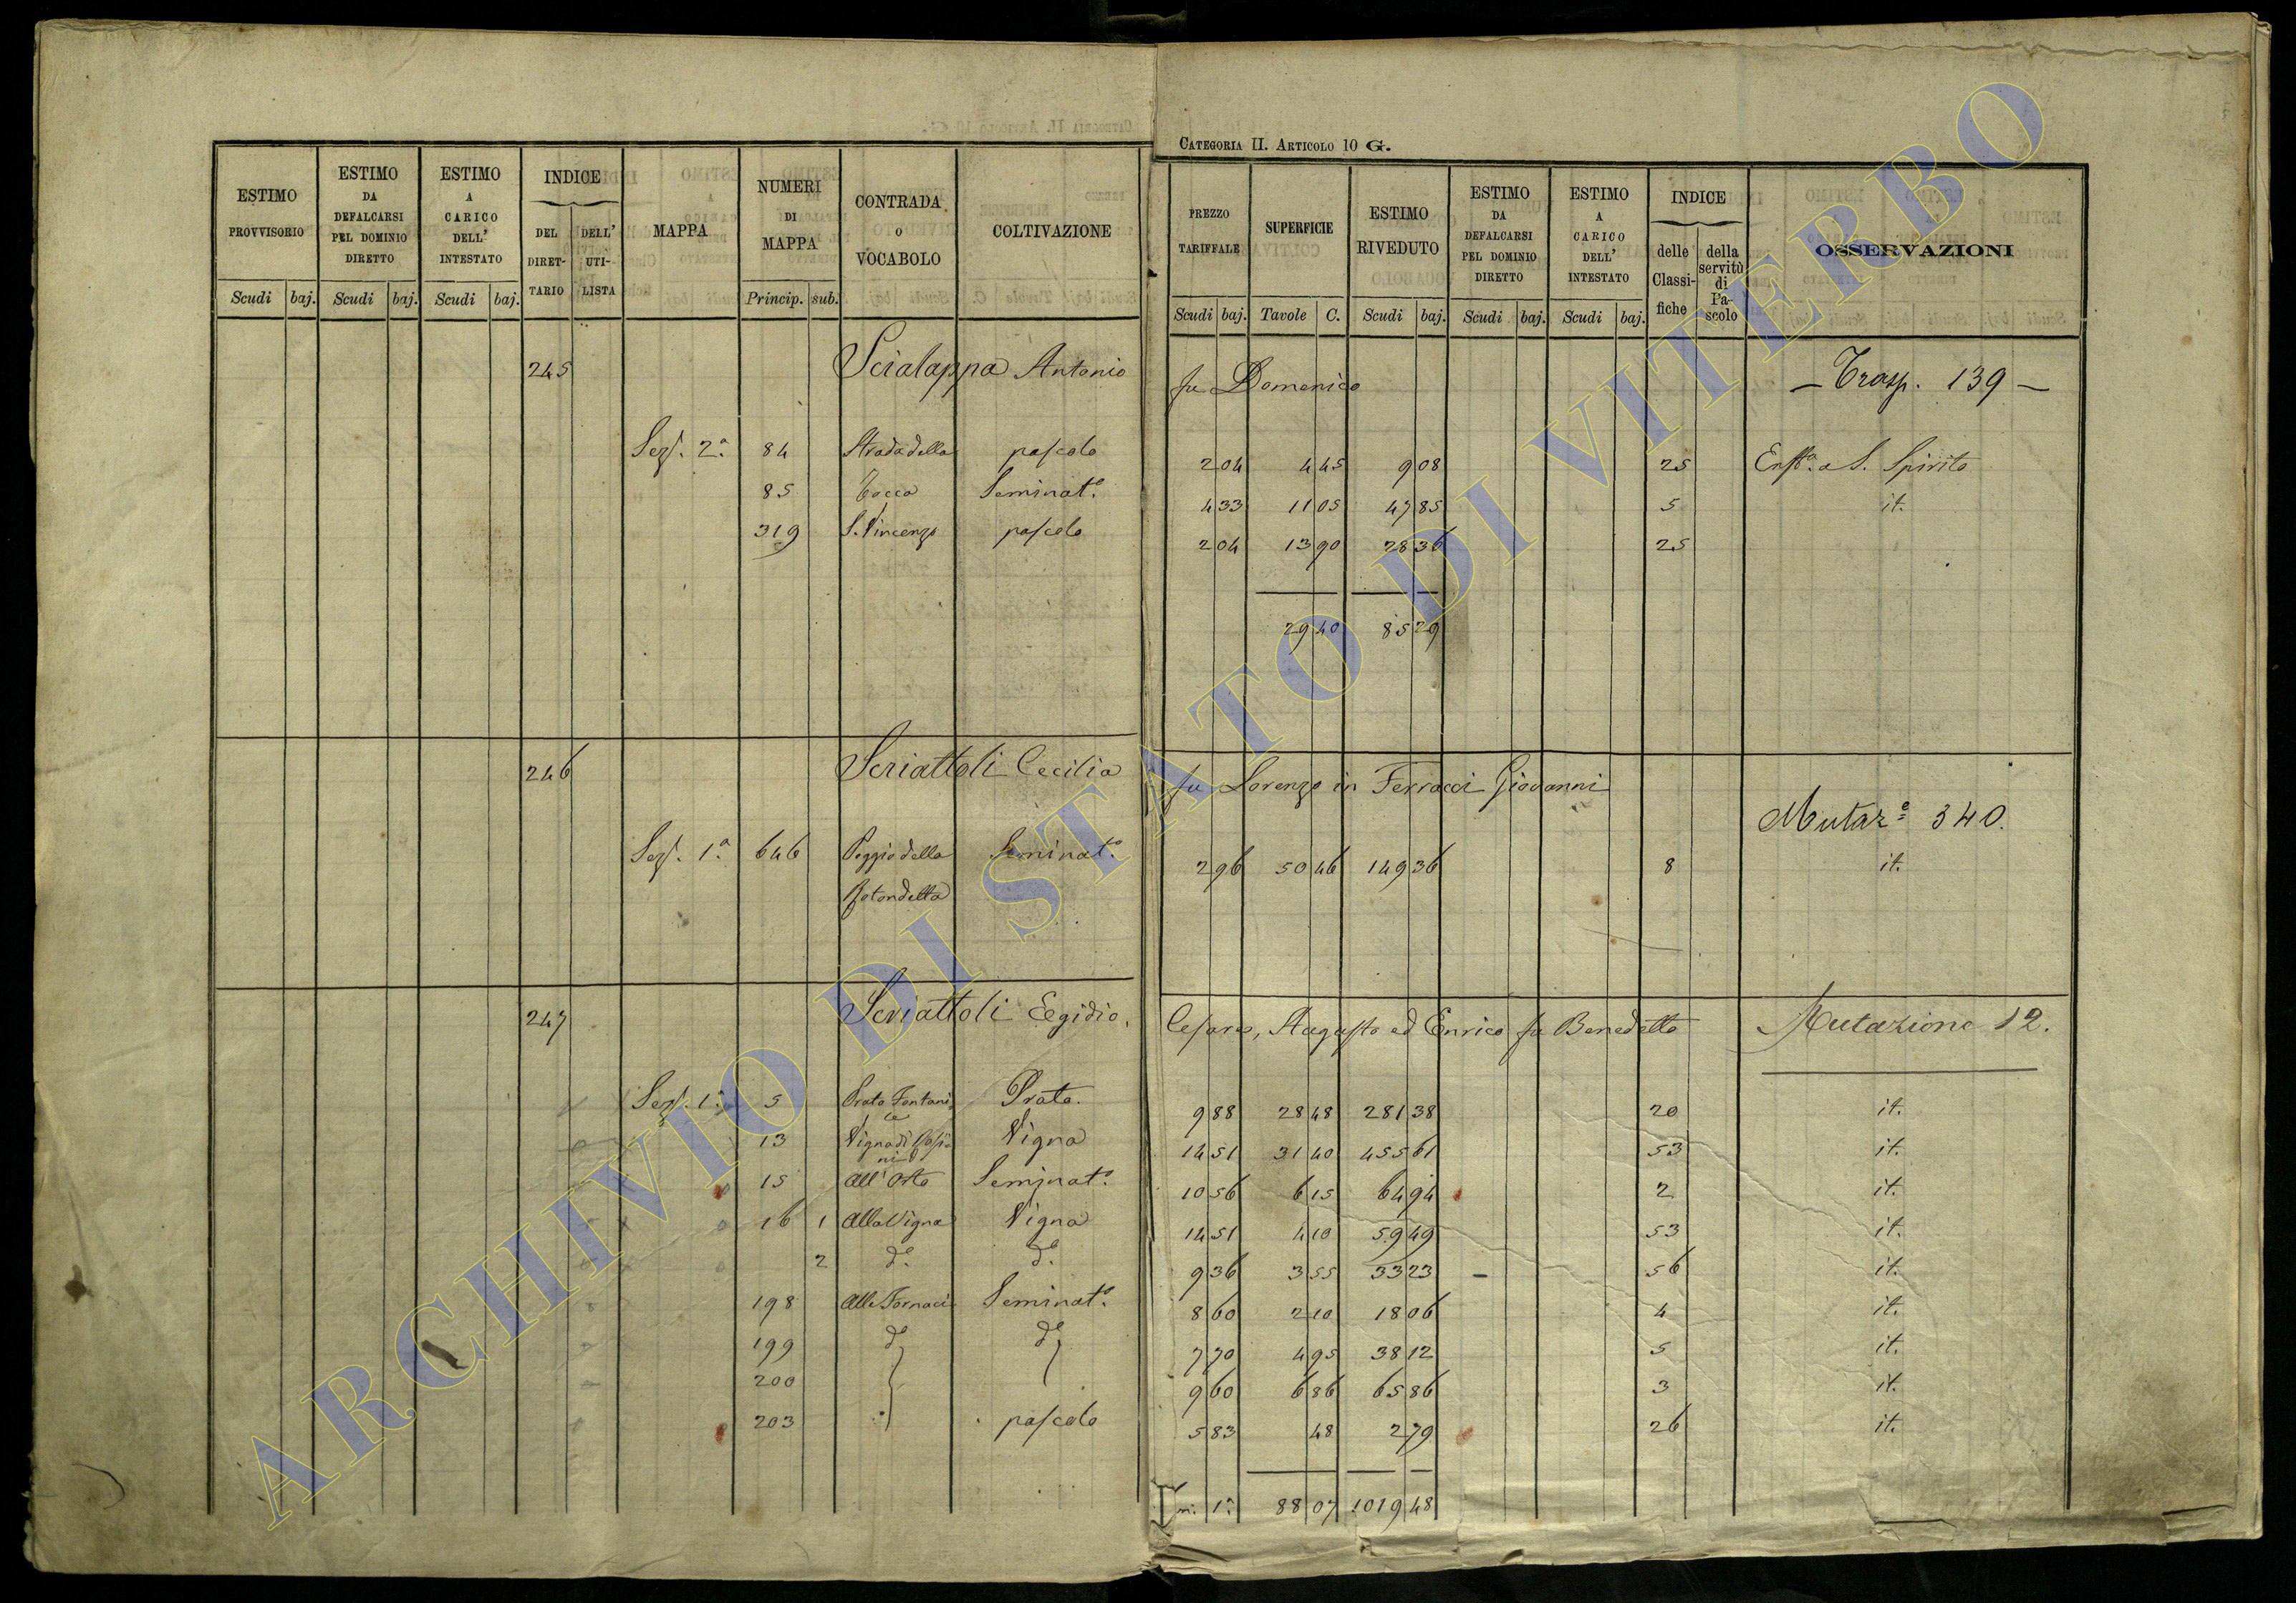 CATEGORIA II. ARTICOLO 10 G.
ESTIMO PROVVISORIO Scudi baj.
ESTIMO DA DEFALCARSI PEL DOMINIO DIRETTO Scudi baj.
ESTIMO A CARICO DELL' INTESTATO Scudi baj.
INDICE DEL DIRETTARIO DELL' UTILISTA
MAPPA
NUMERI DI MAPPA Princip. sub.
CONTRADA o VOCABOLO
COLTIVAZIONE
PREZZO TARIFFALE Scudi baj.
SUPERFICIE Tavole C.
ESTIMO RIVEDUTO Scudi baj.
ESTIMO DA DEFALCARSI PEL DOMINIO DIRETTO Scudi baj.
ESTIMO A CARICO DELL' INTESTATO Scudi baj.
INDICE delle Classifiche della servitù di Pascolo
OSSERVAZIONI
245 Scialappa Antonio fu Domenico — Trasp. 139 —
Sez. 2ª 84 Strada della pascolo 2 04 4 45 9 08 25 S. Spirito
85 Tocca Seminat.º 4 33 11 05 47 85 5 it.
319 S. Vincenzo pascolo 2 04 13 90 28 36 25
29 40 85 29
246 Scriattoli Cecilia fu Lorenzo in Ferracci Giovanni
Mutaz.e 340.
Sez. 1ª 646 Poggio della Seminat.º 2 96 50 46 149 36 8 it.
Rotondella
247 Scriattoli Egidio, Cesare, Augusto ed Enrico fu Benedetto Mutazione 12.
Sez. 1ª 5 Prato Fontanile Prato. 9 88 28 48 281 38 20 it.
13 Vigna di Vigna 14 51 31 40 455 61 53 it.
15 all'Orto Seminat.º 10 56 6 15 64 94 2 it.
16 1 alla Vigna Vigna 14 51 4 10 59 49 53 it.
2 d.º d.º 9 36 3 55 33 23 56 it.
198 alle Fornaci Seminat.º 8 60 2 10 18 06 4 it.
199 d.º d.º 7 70 4 95 38 12 5 it.
200 9 60 6 86 65 86 3 it.
203 pascolo 5 83 48 2 79 26 it.
88 07 1019 48
ARCHIVIO DI STATO DI VITERBO